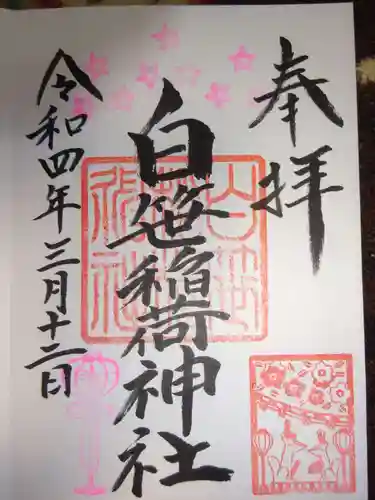 奉拝
白笹稲荷神社
令和四年三月十二日